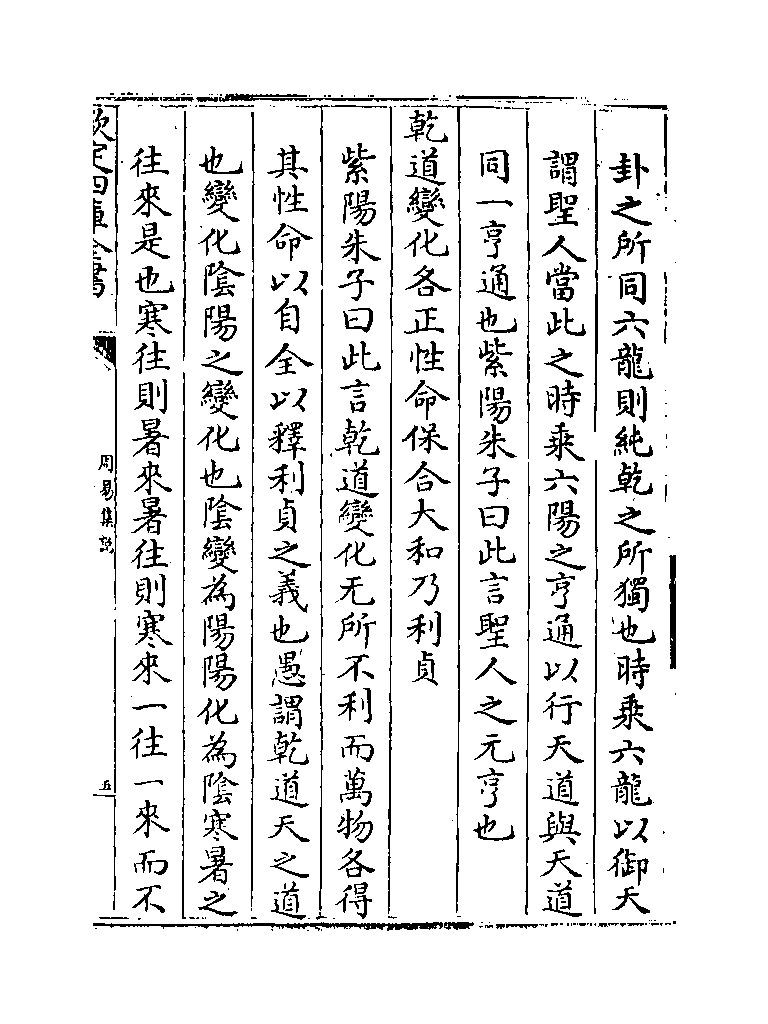 卦之所同六龍則純乾之所獨也時乘六龍以御天
謂聖人當此之時乘六陽之亨通以行天道與天道
同一亨通也紫陽朱子曰此言聖人之元亨也
乾道變化各正性命保合大和乃利貞
紫陽朱子曰此言乾道變化无所不利而萬物各得
其性命以自全以釋利貞之義也愚謂乾道天之道
也變化陰陽之變化也陰變為陽陽化為陰寒暑之
往來是也寒往則暑來暑往則寒來一往一來而不
欽定四庫全書
周易集說
五